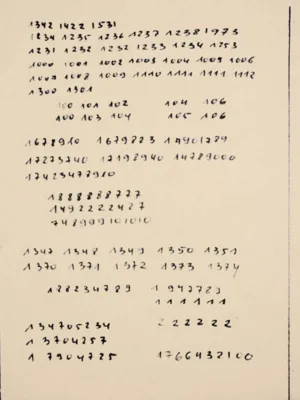 1342 1422 1531
1234 1235 1236 1237 1238 1973
1231 1232 1232 1233 1234 1253
1000 1001 1002 1003 1004 1005 1006
1007 1008 1009 1110 1111 1111 1112
1300 1301
100 101 102 104 106
100 103 104 105 106
1678910 1679823 17901789
17273740 17198940 14789000
17423478910
1888888777
1492222427
748909101010
1347 1348 1349 1350 1351
1370 1371 1372 1373 1374
128234789 1947783
111111
134705234 222222
13704257
17904725 1766432100